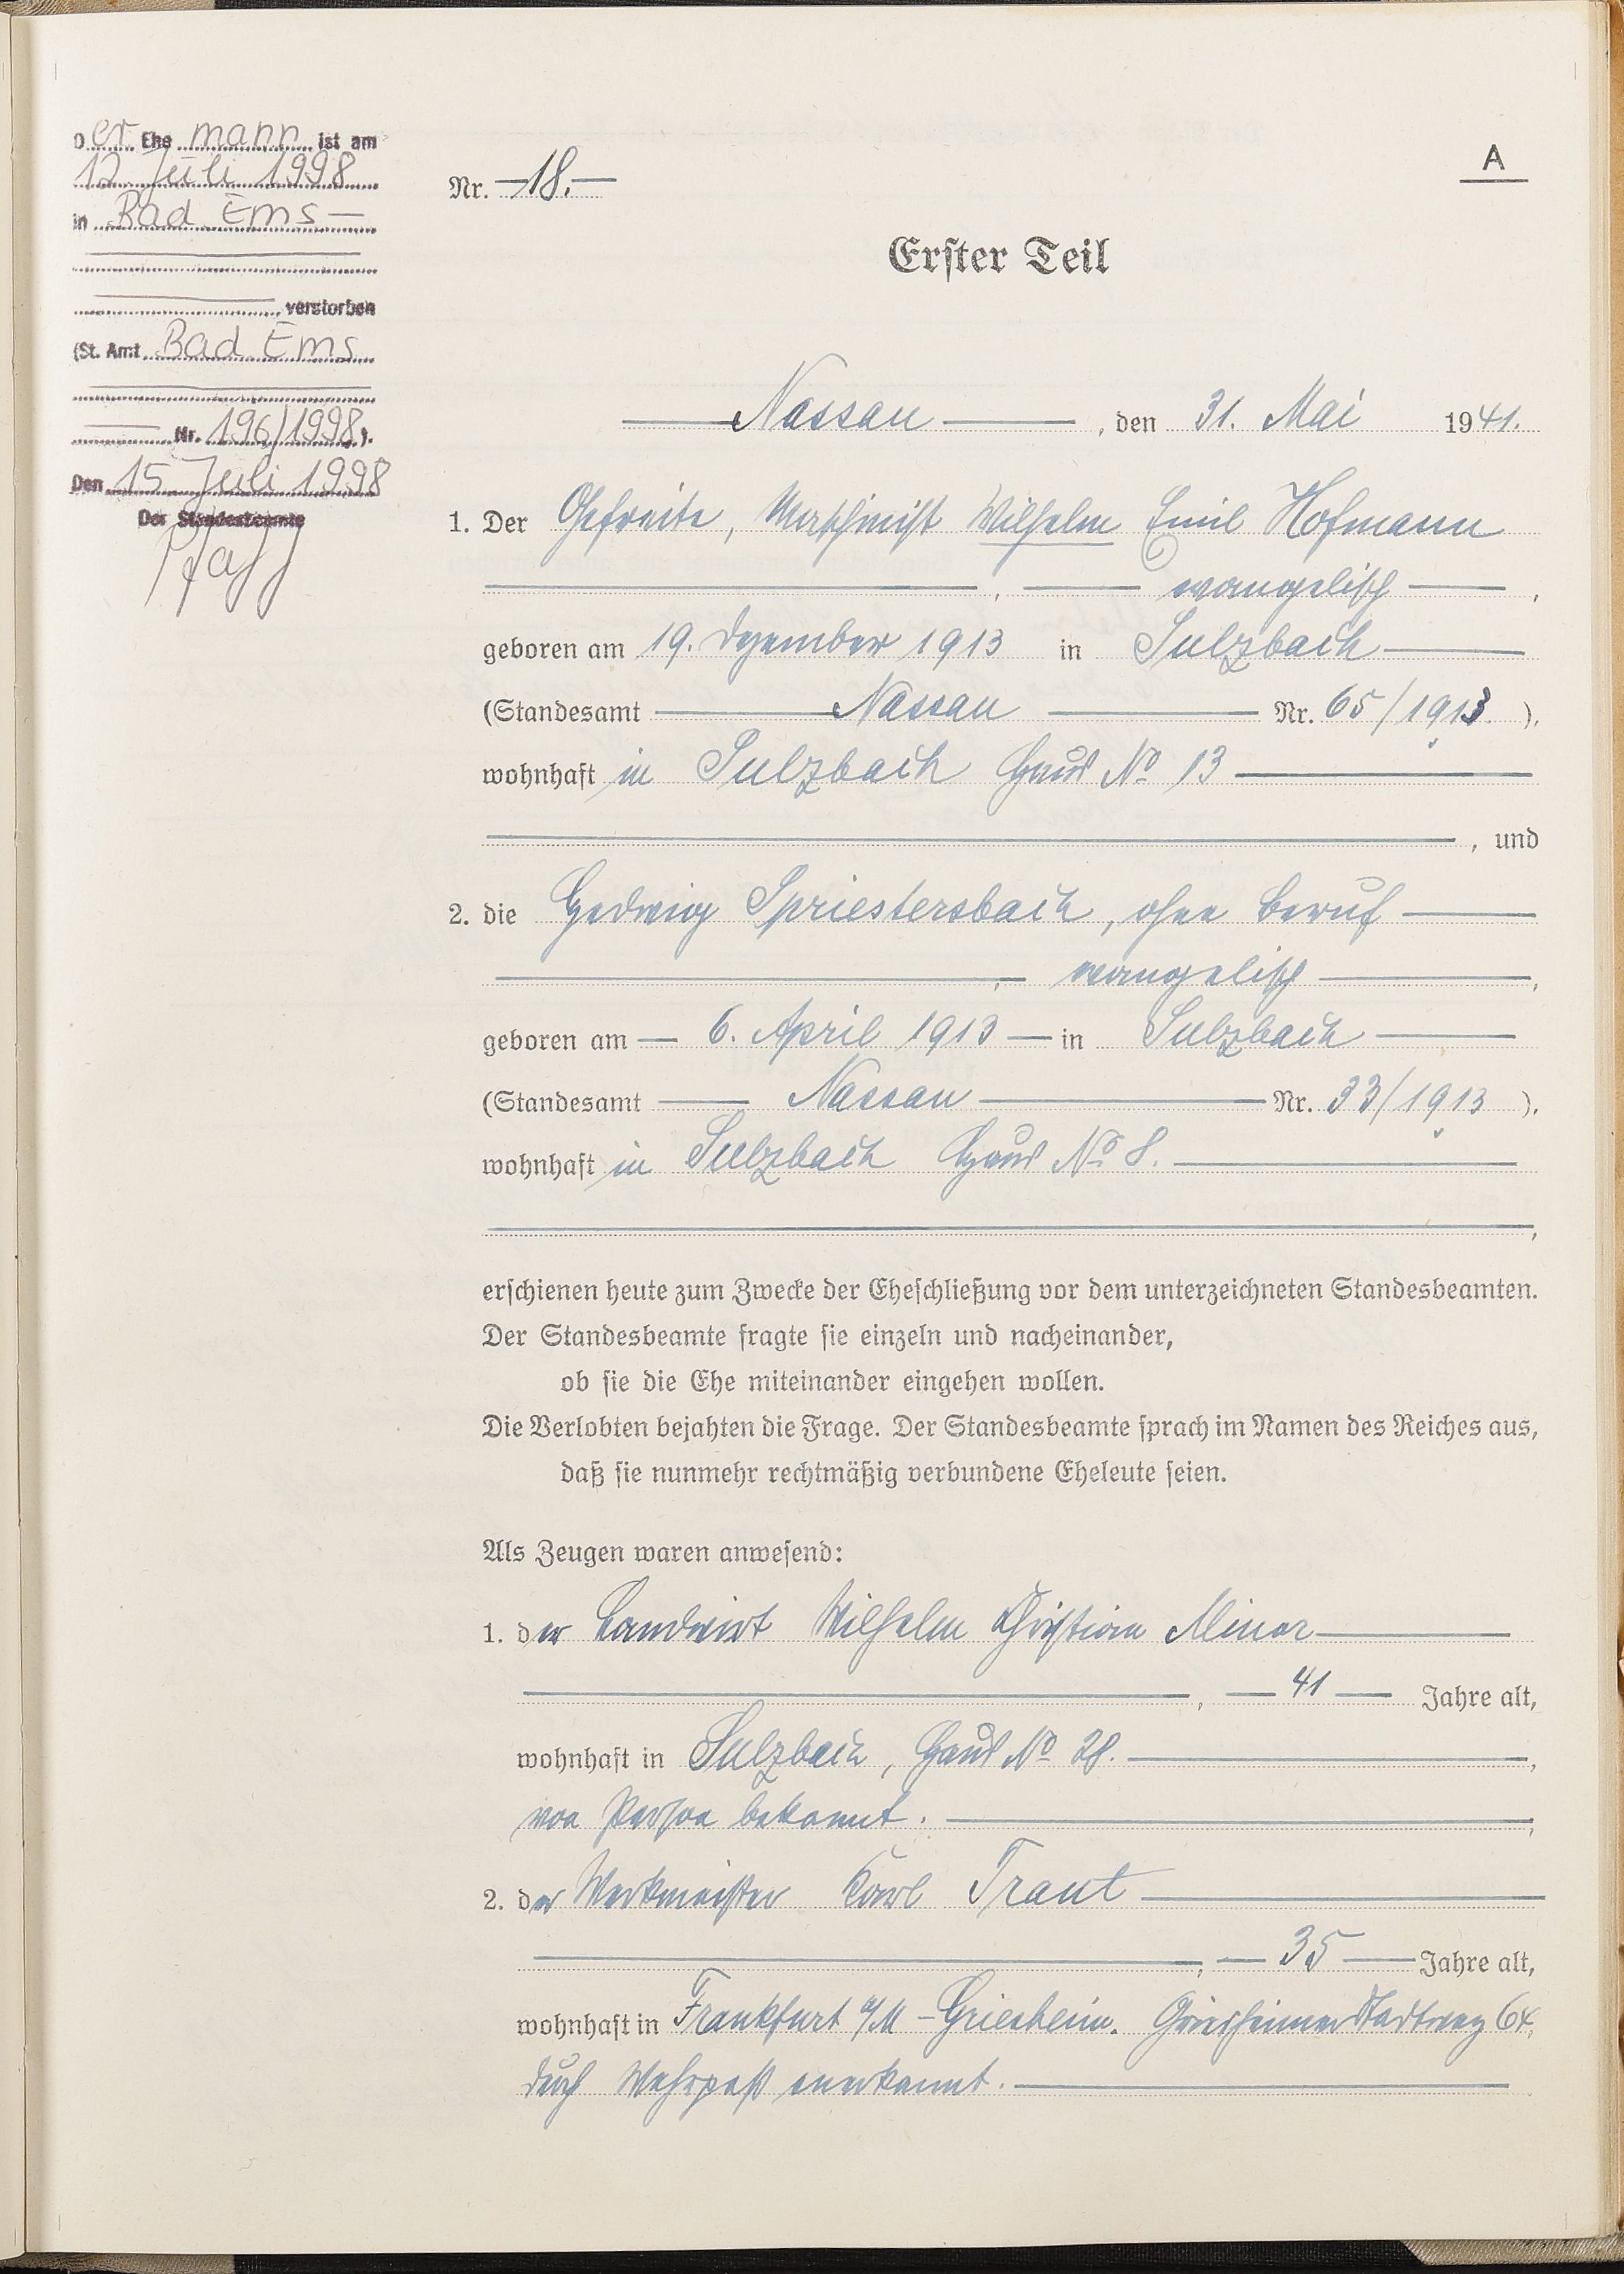 Der Ehe mann ist am
12. Juli 1998
in Bad Ems
verstorben
(St. Amt Bad Ems
Nr. 196/1998).
Den 15. Juli 1998
Der Standesbeamte
A
Nr. 18.
Erster Teil
Nassau, den 31. Mai 1941.
1. Der Gefreite, Maschinist Wilhelm Emil Hofmann
, evangelisch,
geboren am 19. Dezember 1913 in Sulzbach
(Standesamt Nassau Nr. 65/1913 ),
wohnhaft in Sulzbach Haus No 13
, und
2. die Hedwig Spriestersbach, ohne Beruf
, evangelisch,
geboren am 6. April 1913 in Sulzbach
(Standesamt Nassau Nr. 33/1913 ),
wohnhaft in Sulzbach Haus No 8.
erschienen heute zum Zwecke der Eheschließung vor dem unterzeichneten Standesbeamten.
Der Standesbeamte fragte sie einzeln und nacheinander,
ob sie die Ehe miteinander eingehen wollen.
Die Verlobten bejahten die Frage. Der Standesbeamte sprach im Namen des Reiches aus,
daß sie nunmehr rechtmäßig verbundene Eheleute seien.
Als Zeugen waren anwesend:
1. der Landwirt Wilhelm Christian Minor
, 41 Jahre alt,
wohnhaft in Sulzbach, Haus No 28.
von Person bekannt.
2. der Werkmeister Karl Traut
, 35 Jahre alt,
wohnhaft in Frankfurt a/M - Griesheim. Griesheimer Stadtweg 64,
durch Wehrpaß anerkannt.